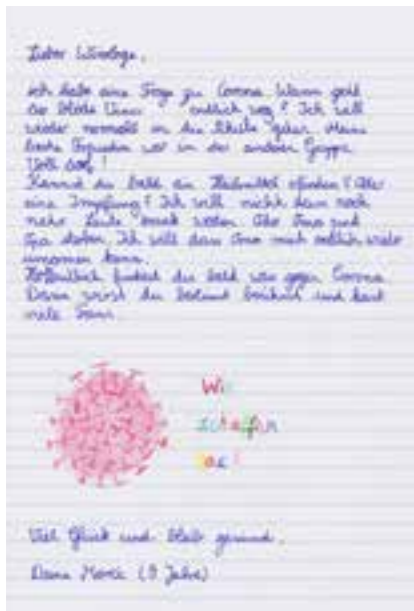 Lieber Virologe,
ich habe eine Frage zu Corona. Wann geht
der blöde Virus endlich weg? Ich will
wieder normal in die Schule gehen. Meine
beste Freundin war in der anderen Gruppe.
Voll doof!
Kannst du bald ein Heilmittel erfinden? Oder
eine Impfung? Ich will nicht dass noch
mehr Leute krank werden. Oder Oma und
Opa sterben. Ich will dass Oma mich endlich wieder
umarmen kann.
Hoffentlich findest du bald was gegen Corona.
Dann wirst du bestimmt berühmt und hast
viele Fans.
Wir
schaffen
das!
Viel Glück und bleib gesund.
Deine (9 Jahre)